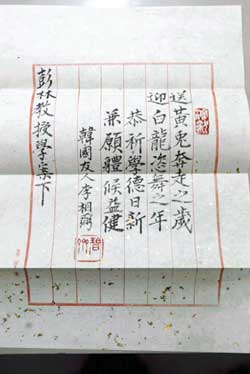 送黃兎奔走之歲
迎白龍洛舞之年
恭祈學德日新
兼願體候益健
韓國友人李相弼
彭林教授學案下